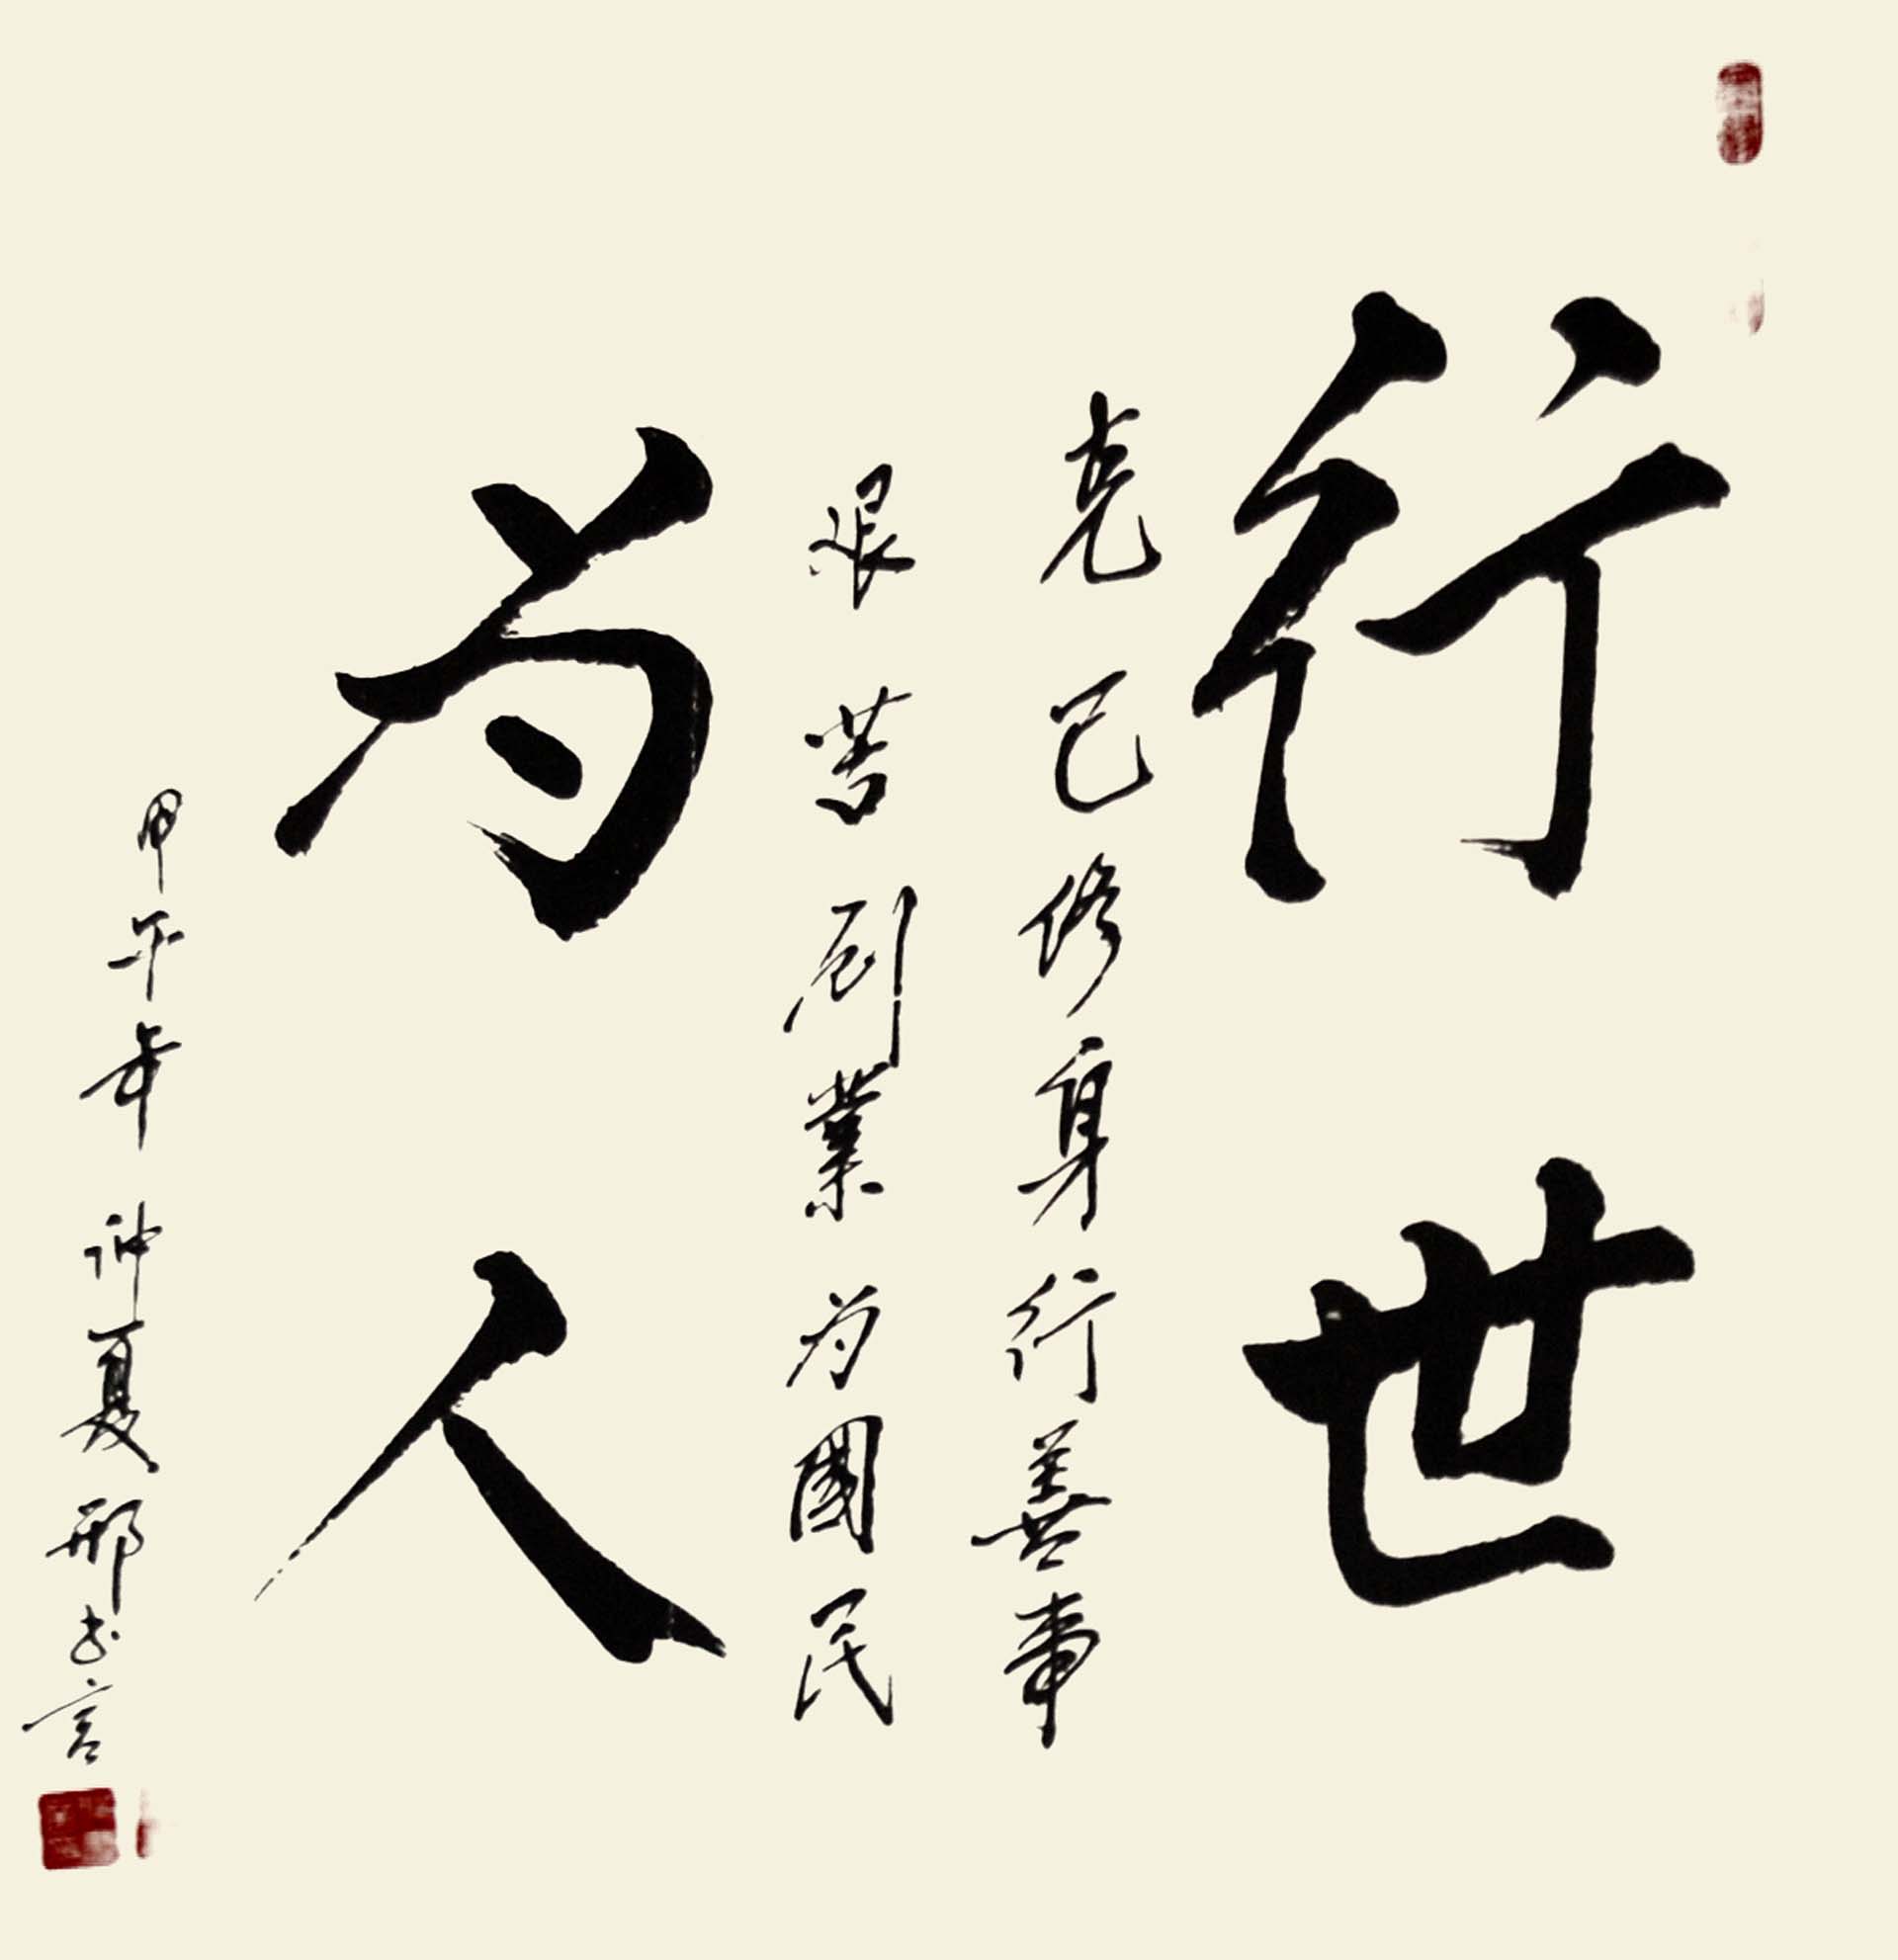 行世
克己修身行善事
艰苦创業为國民
为人
甲午年仲夏邢言